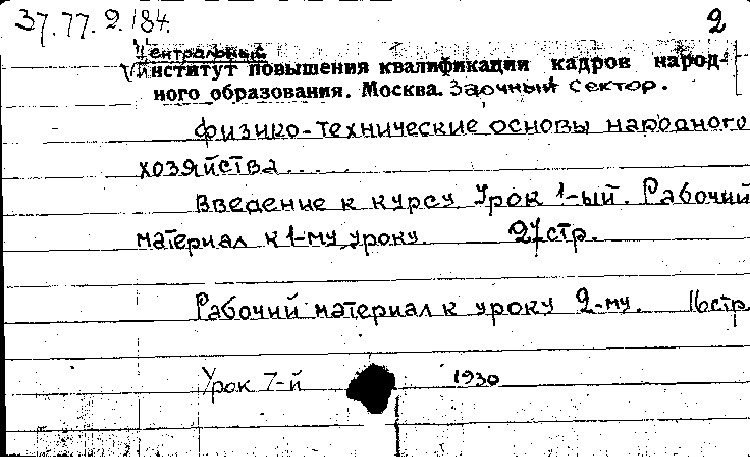 37.77.2.184.
2
Центральный
институт повышения квалификации кадров народ-
ного образования. Москва. Заочный сектор.
Физико-технические основы народного
хозяйства.....
Введение к курсу. Урок 1-ый. Рабочий
материал к 1-му уроку. 27стр.
Рабочий материал к уроку 2-му. 16стр
Урок 7-й 1930